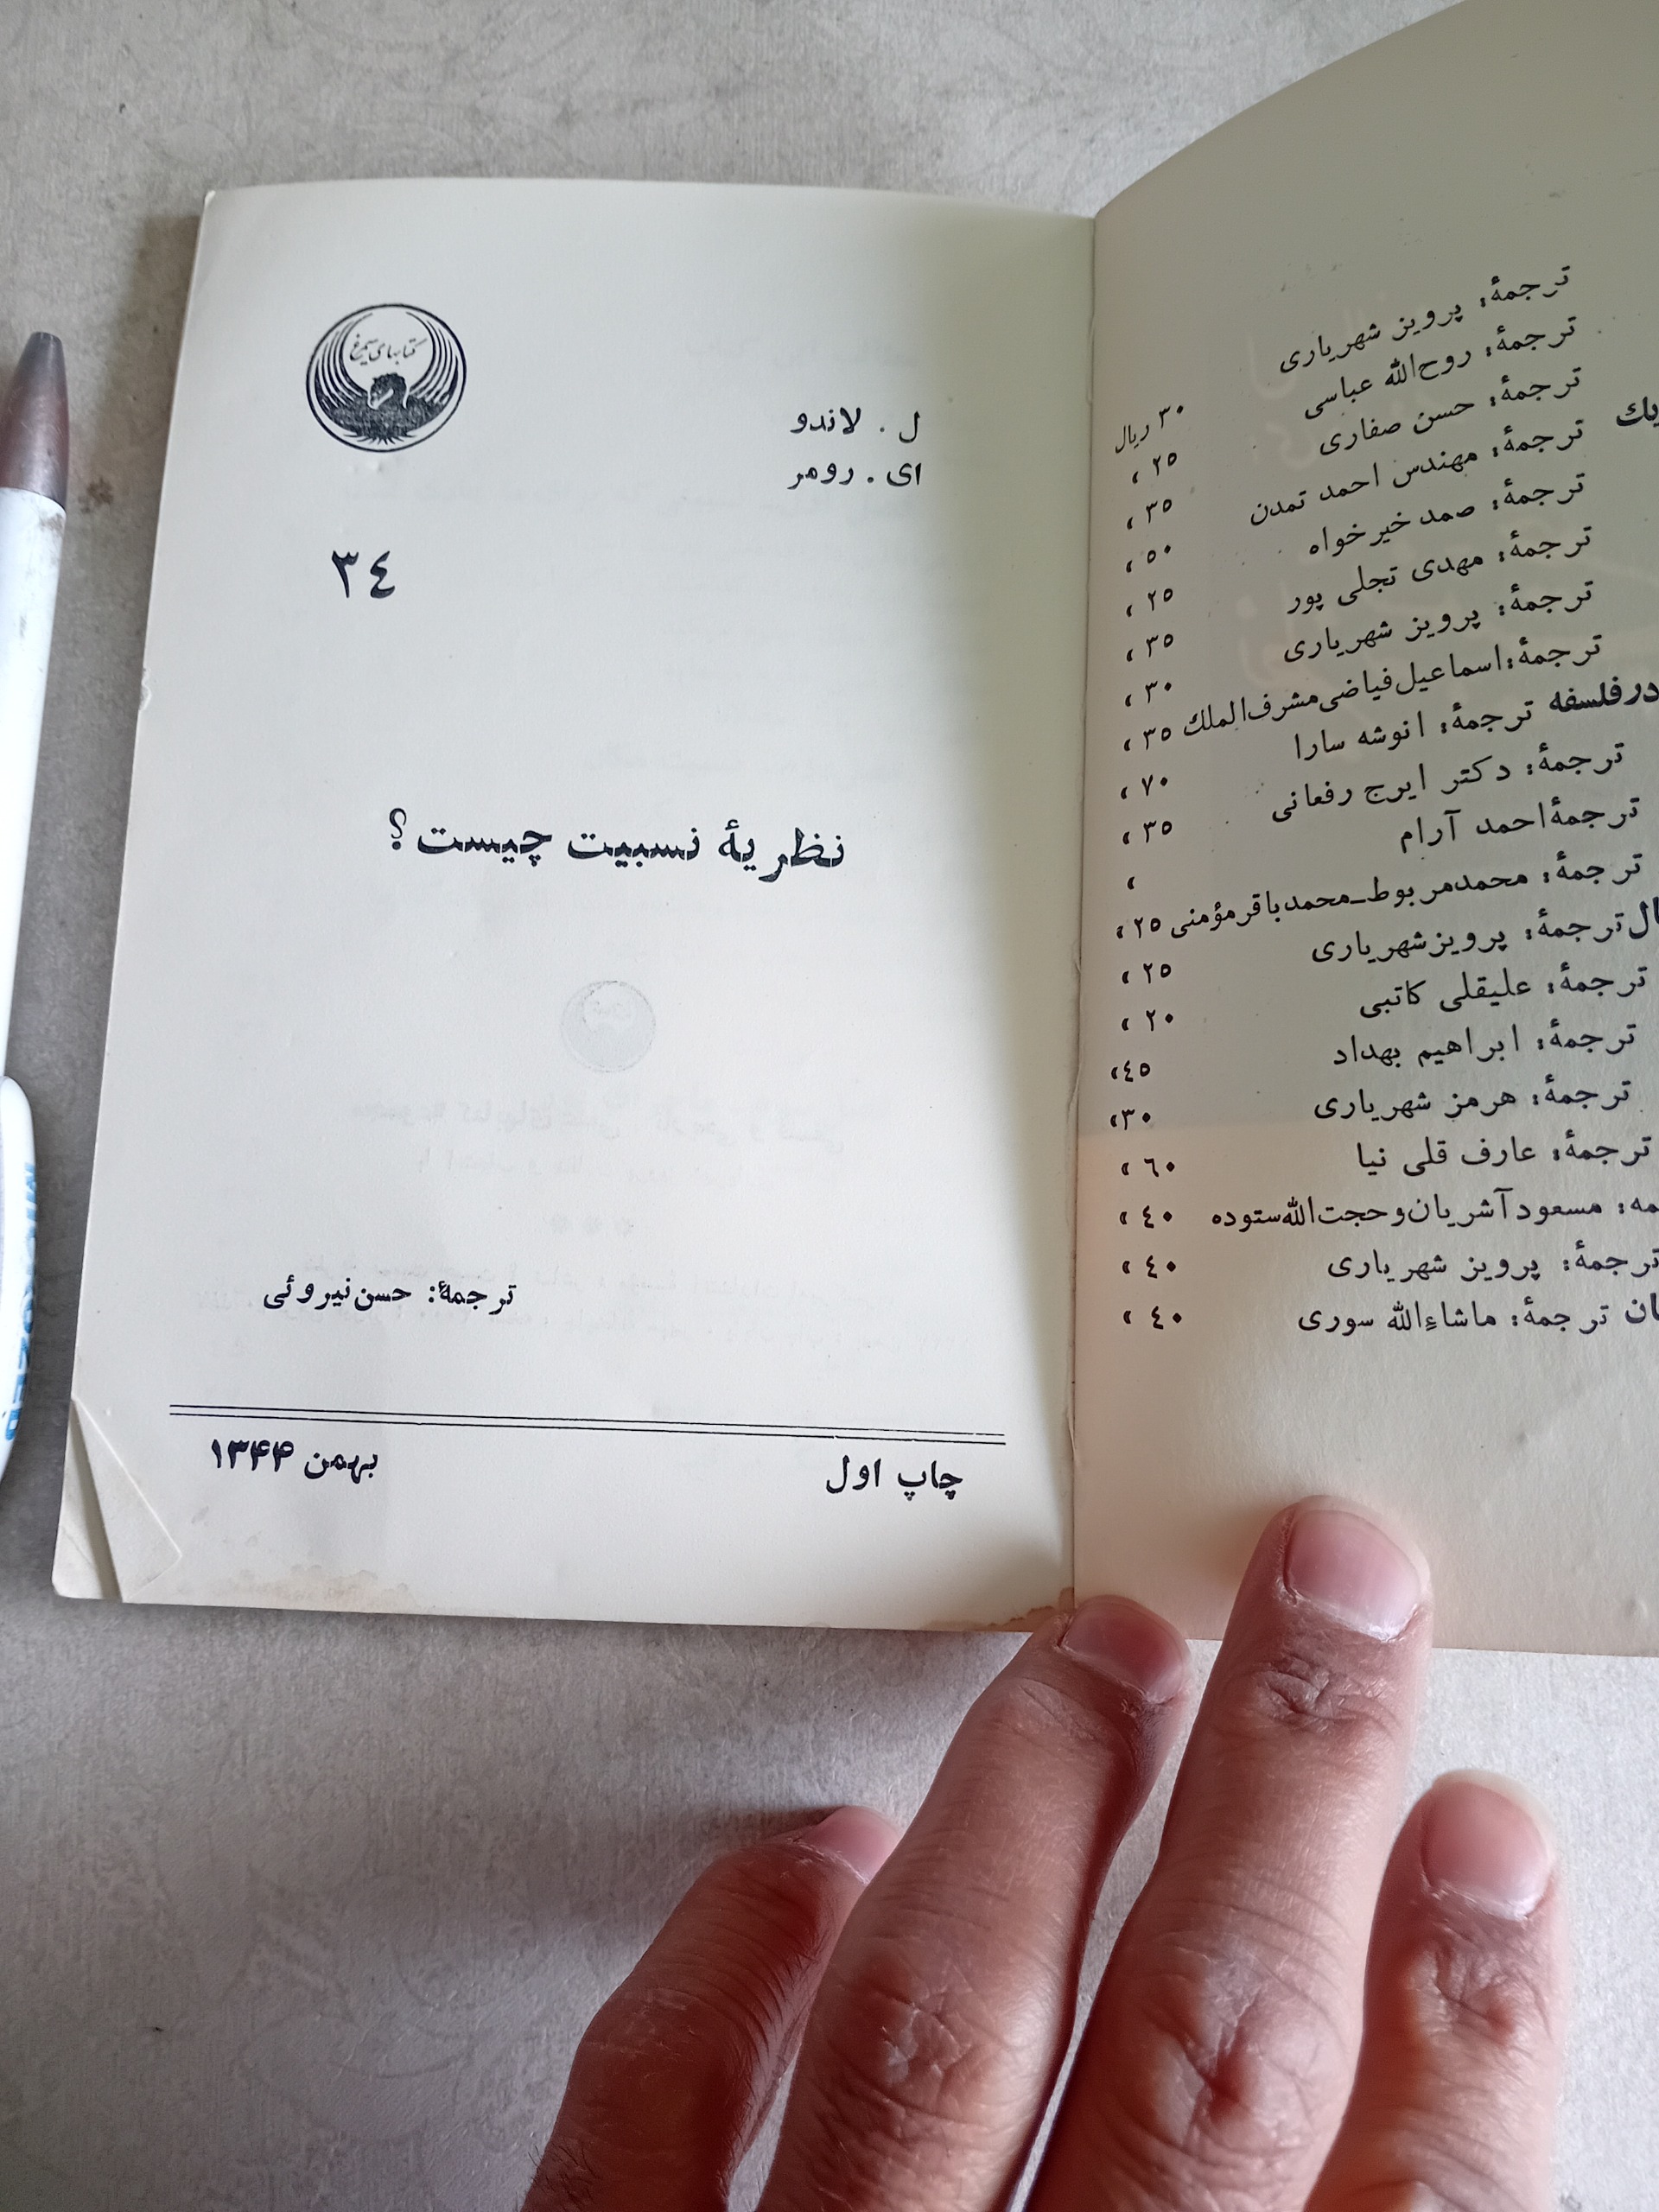 کتابهای سیمرغ
ل . لاندو
ای . رومر
٣٤
نظریهٔ نسبیت چیست ؟
ترجمهٔ: حسن نیروئی
چاپ اول
بهمن ۱۳۴۴
ترجمهٔ: پرویز شهریاری ٣٠ ریال
ترجمهٔ: روح‌الله عباسی ٢٥ ،
ترجمهٔ: حسن صفاری ٣٥ ،
یك ترجمهٔ: مهندس احمد تمدن ٥٠ ،
ترجمهٔ: صمد خیرخواه ٢٥ ،
ترجمهٔ: مهدی تجلی پور ٣٥ ،
ترجمهٔ: پرویز شهریاری ٣٠ ،
ترجمهٔ: اسماعیل فیاضی مشرف الملك ٣٥ ،
در فلسفه ترجمهٔ: انوشه سارا ٧٠ ،
ترجمهٔ: دکتر ایرج رفعانی ٣٥ ،
ترجمهٔ احمد آرام ،
ترجمهٔ: محمد مربوط ــ محمد باقر مؤمنی ٢٥ ،
ال ترجمهٔ: پرویز شهریاری ٢٥ ،
ترجمهٔ: علیقلی کاتبی ٢٠ ،
ترجمهٔ: ابراهیم بهداد ٤٥ ،
ترجمهٔ: هرمز شهریاری ٣٠ ،
ترجمهٔ: عارف قلی نیا ٦٠ ،
مه: مسعود آشریان و حجت‌الله ستوده ٤٠ ،
ترجمهٔ: پرویز شهریاری ٤٠ ،
ان ترجمهٔ: ماشاءالله سوری ٤٠ ،